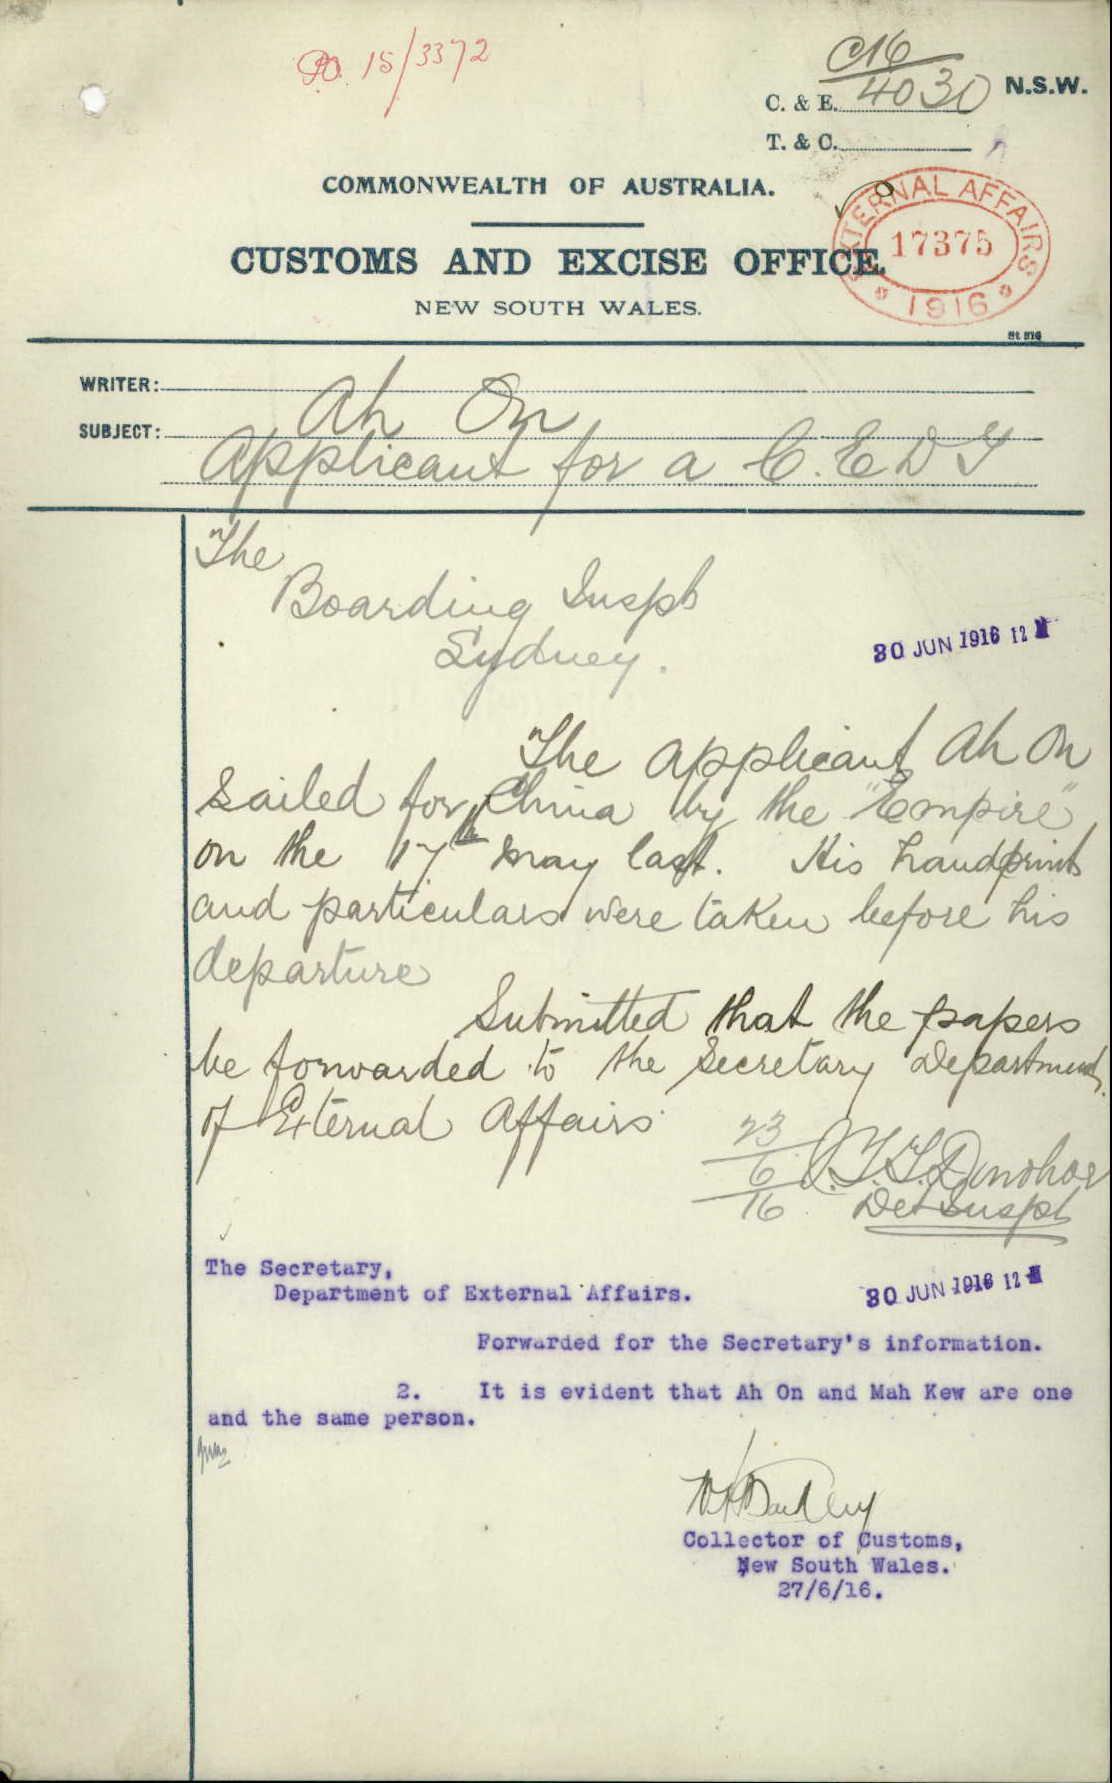 15/3372
C16
C. & E. 4030 N.S.W.
T. & C.
COMMONWEALTH OF AUSTRALIA.
EXTERNAL AFFAIRS
17375
1916
CUSTOMS AND EXCISE OFFICE.
NEW SOUTH WALES.
WRITER:
Ah On
SUBJECT:
Applicant for a C. E D T
The
Boarding Inspt
Sydney.
30 JUN 1916 12
The applicant Ah On
Sailed for China by the "Empire"
on the 17th May last. His handprints
and particulars were taken before his
departure
Submitted that the papers
be forwarded to the Secretary Department
of External Affairs
23
6
16
Donohoe
Det Inspt
The Secretary,
Department of External Affairs.
30 JUN 1916 12
Forwarded for the Secretary's information.
2. It is evident that Ah On and Mah Kew are one
and the same person.
Collector of Customs,
New South Wales.
27/6/16.